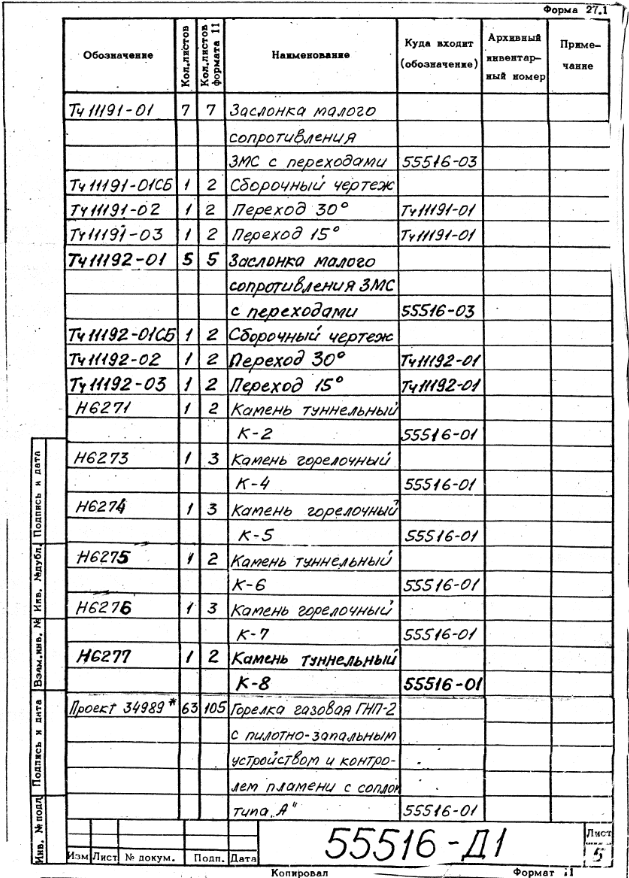 Форма 27.1
Обозначение Кол.листов Кол.листов формата 11 Наименование Куда входит (обозначение) Архивный инвентарный номер Примечание
Тч11191-01 7 7 Заслонка малого
сопротивления
ЗМС с переходами 55516-03
Тч11191-01СБ 1 2 Сборочный чертеж
Тч11191-02 1 2 Переход 30° Тч11191-01
Тч11191-03 1 2 Переход 15° Тч11191-01
Тч11192-01 5 5 Заслонка малого
сопротивления ЗМС
с переходами 55516-03
Тч11192-01СБ 1 2 Сборочный чертеж
Тч11192-02 1 2 Переход 30° Тч11192-01
Тч11192-03 1 2 Переход 15° Тч11192-01
Н6271 1 2 Камень туннельный
К-2 55516-01
Н6273 1 3 Камень горелочный
К-4 55516-01
Н6274 1 3 Камень горелочный
К-5 55516-01
Н6275 1 2 Камень туннельный
К-6 55516-01
Н6276 1 3 Камень горелочный
К-7 55516-01
Н6277 1 2 Камень туннельный
К-8 55516-01
Проект 34989* 63 105 Горелка газовая ГНП-2
с пилотно-запальным
устройством и контро-
лем пламени с соплом
типа „А" 55516-01
Инв. № подл. Подпись и дата Взам.инв. № Инв. №дубл. Подпись и дата
Изм Лист № докум. Подп. Дата
55516-Д1
Лист
5
Копировал Формат 11